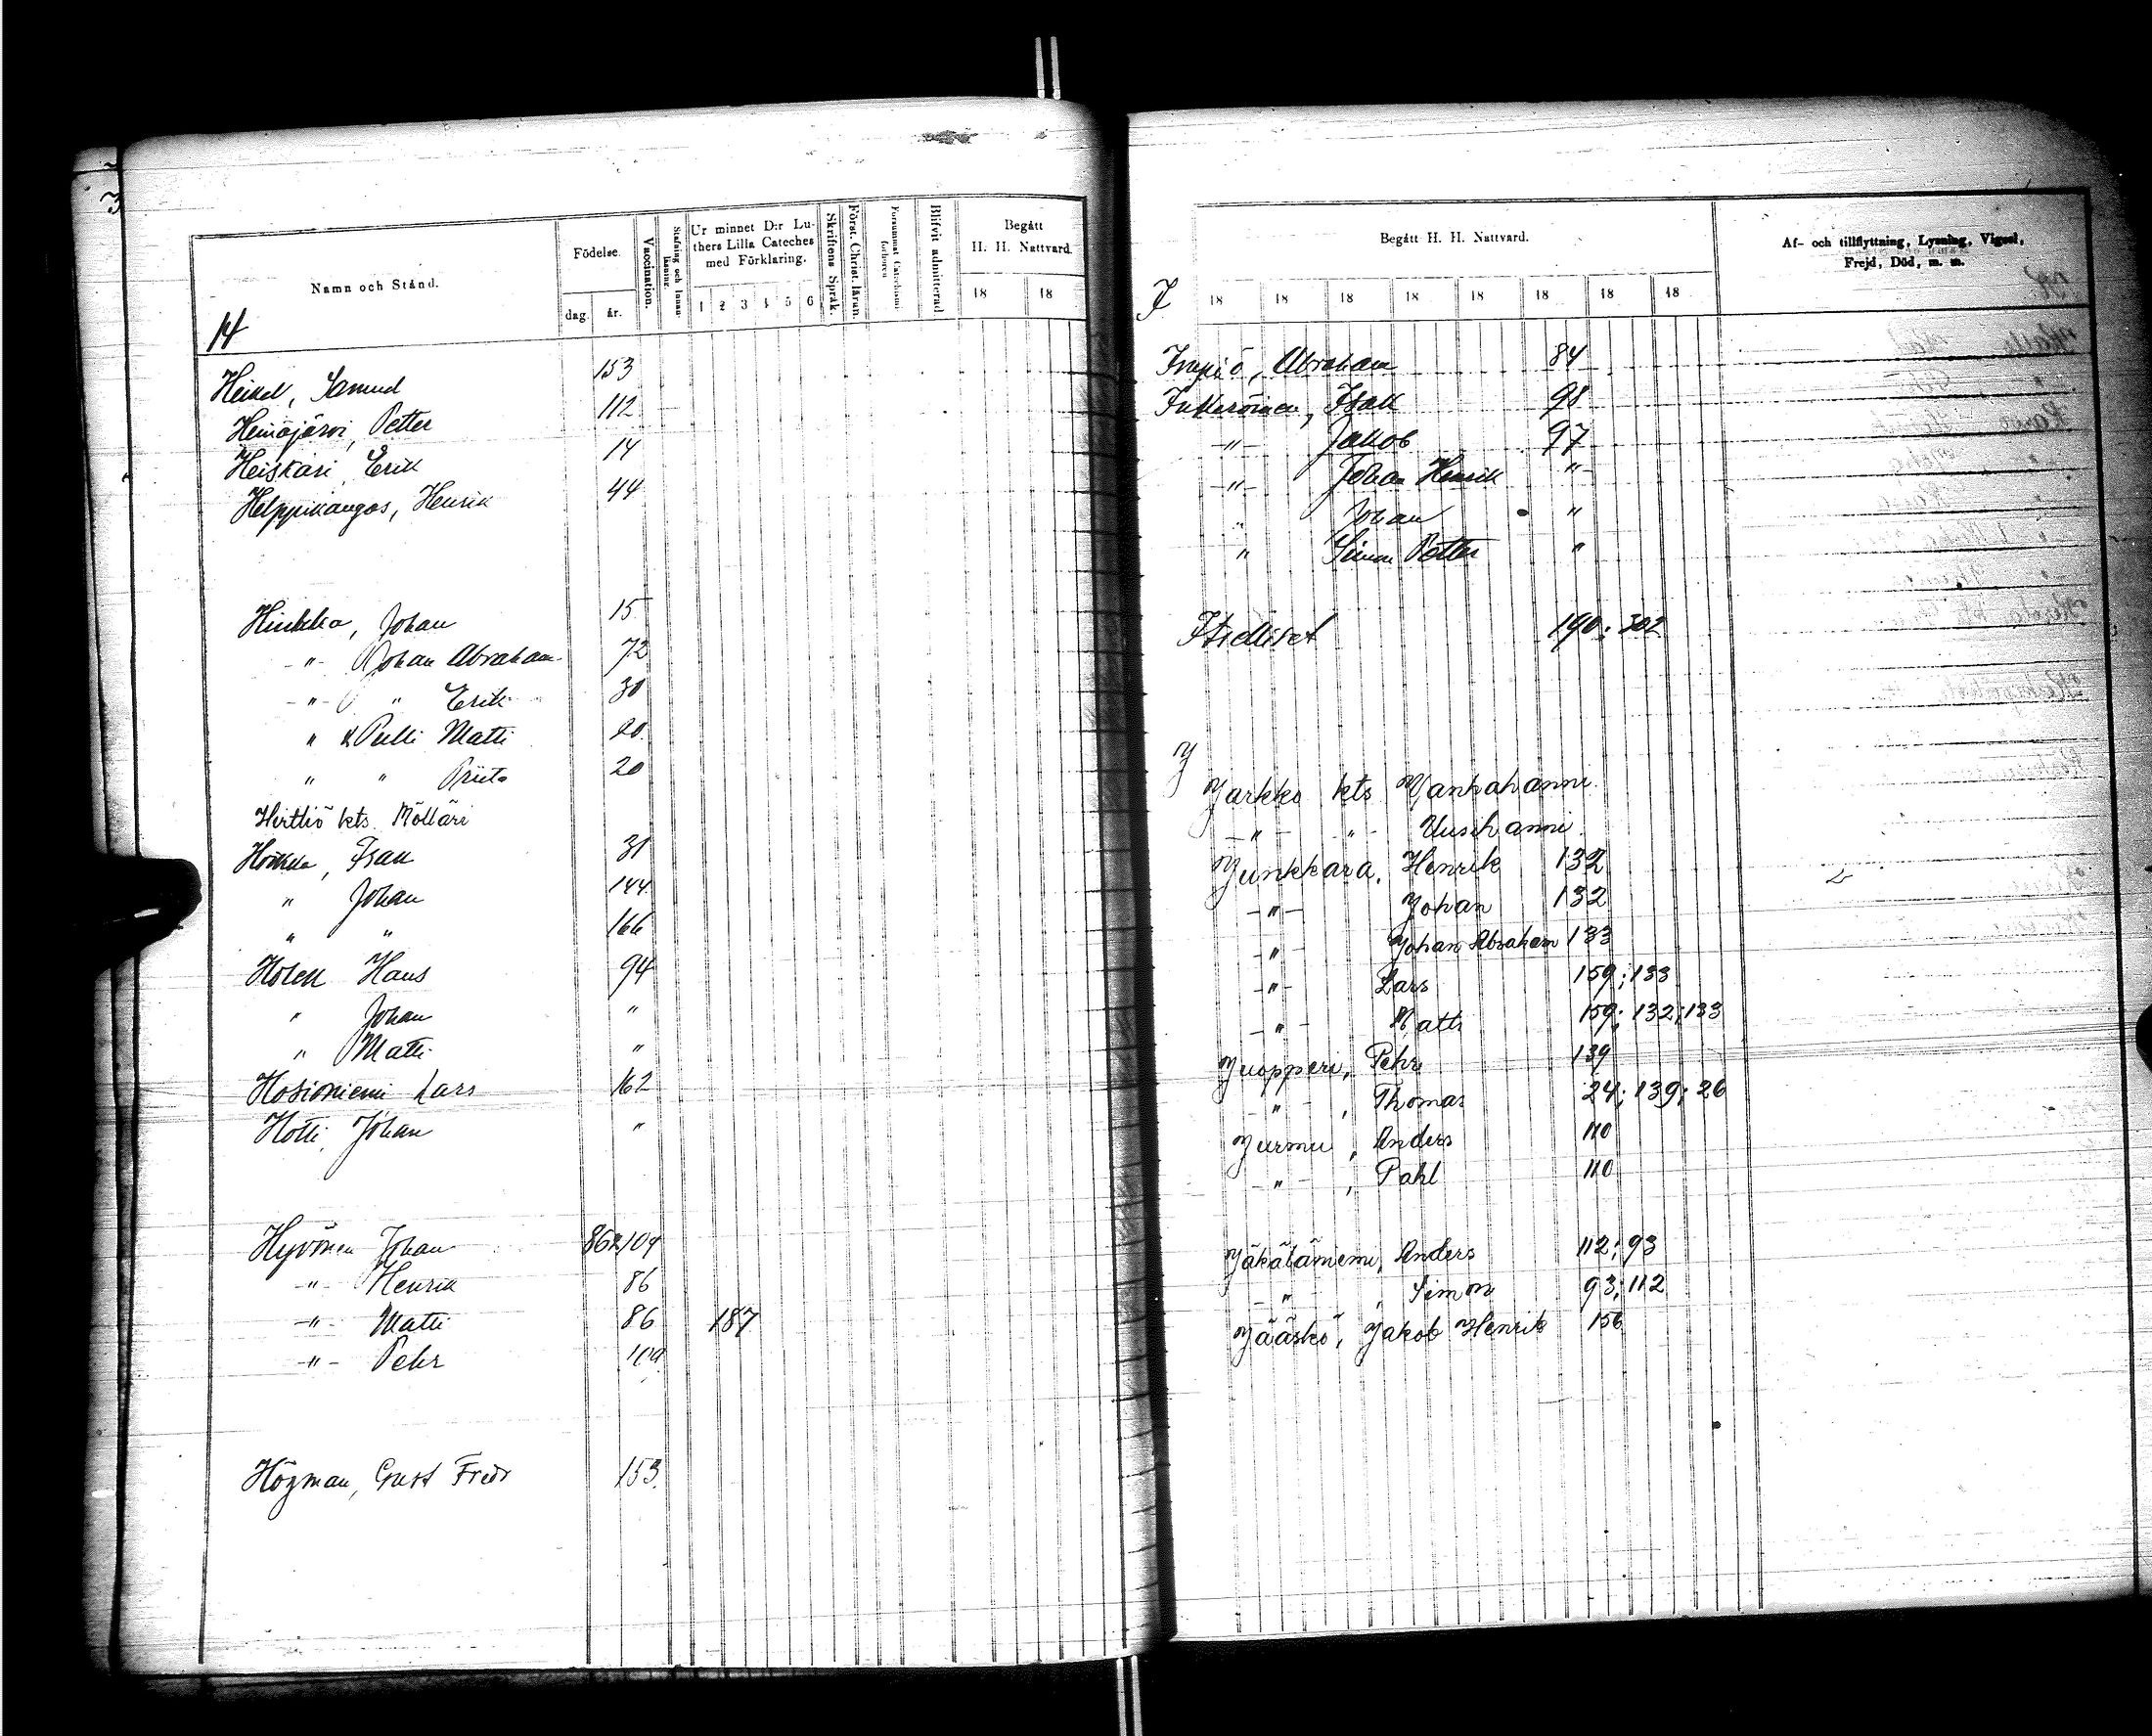 Namn och Stånd.
Födelse.
dag.
år.
Vaccination.
Stafning och innanläsning.
Ur minnet D:r Luthers Lilla Cateches med Förklaring.
1 2 3 4 5 6
Skriftens Språk.
Först. Christ. läran.
Försummat Catechismi förhören
Blifvit admitterad
Begått H. H. Nattvard.
18 18
14
Heikel, Samuel 153
Heinäjärvi, Petter 112
Heiskari, Erik 14
Helppikangas, Henrik 44
Hinkka, Johan 15
-"- Johan Abraham 72
-"- " Erik 30
" Pulli Matti 20
" " Priita 20
Hirttiö kts. Mölläri
Hoikka, Isak 31
" Johan 144
" " 166
Holck Hans 94
" Johan "
" Matti "
Hosioniemi Lars 162
Hotti, Johan "
Hyvönen Johan 86 104
-"- Henrik 86
-"- Matti 86 187
-"- Pehr 104
Högman, Gust Fredr 153.
Begått H. H. Nattvard.
18 18 18 18 18 18 18 18
Af- och tillflyttning, Lysning, Vigsel, Frejd, Död, m. m.
I
Impiö, Abraham 84
Inkeröinen, Isak 98
-"- Jakob 97
-"- Johan Henrik "
" Johan "
" Simon Petter "
190; 302
J
Jarkko kts Vanhahanni
-"- -"- Uusihanni
Junkkara, Henrik 132
-"- Johan 132
-"- Johan Abraham 133
-"- Lars 159; 133
-"- Matti 159; 132; 133
Juopperi, Pehr 139
-"-, Thomas 24; 139; 26
Jurmu, Anders 110
-"-, Pahl 110
Jäkäläniemi, Anders 112; 93
-"-, Simon 93; 112
Jääskö, Jakob Henrik 156